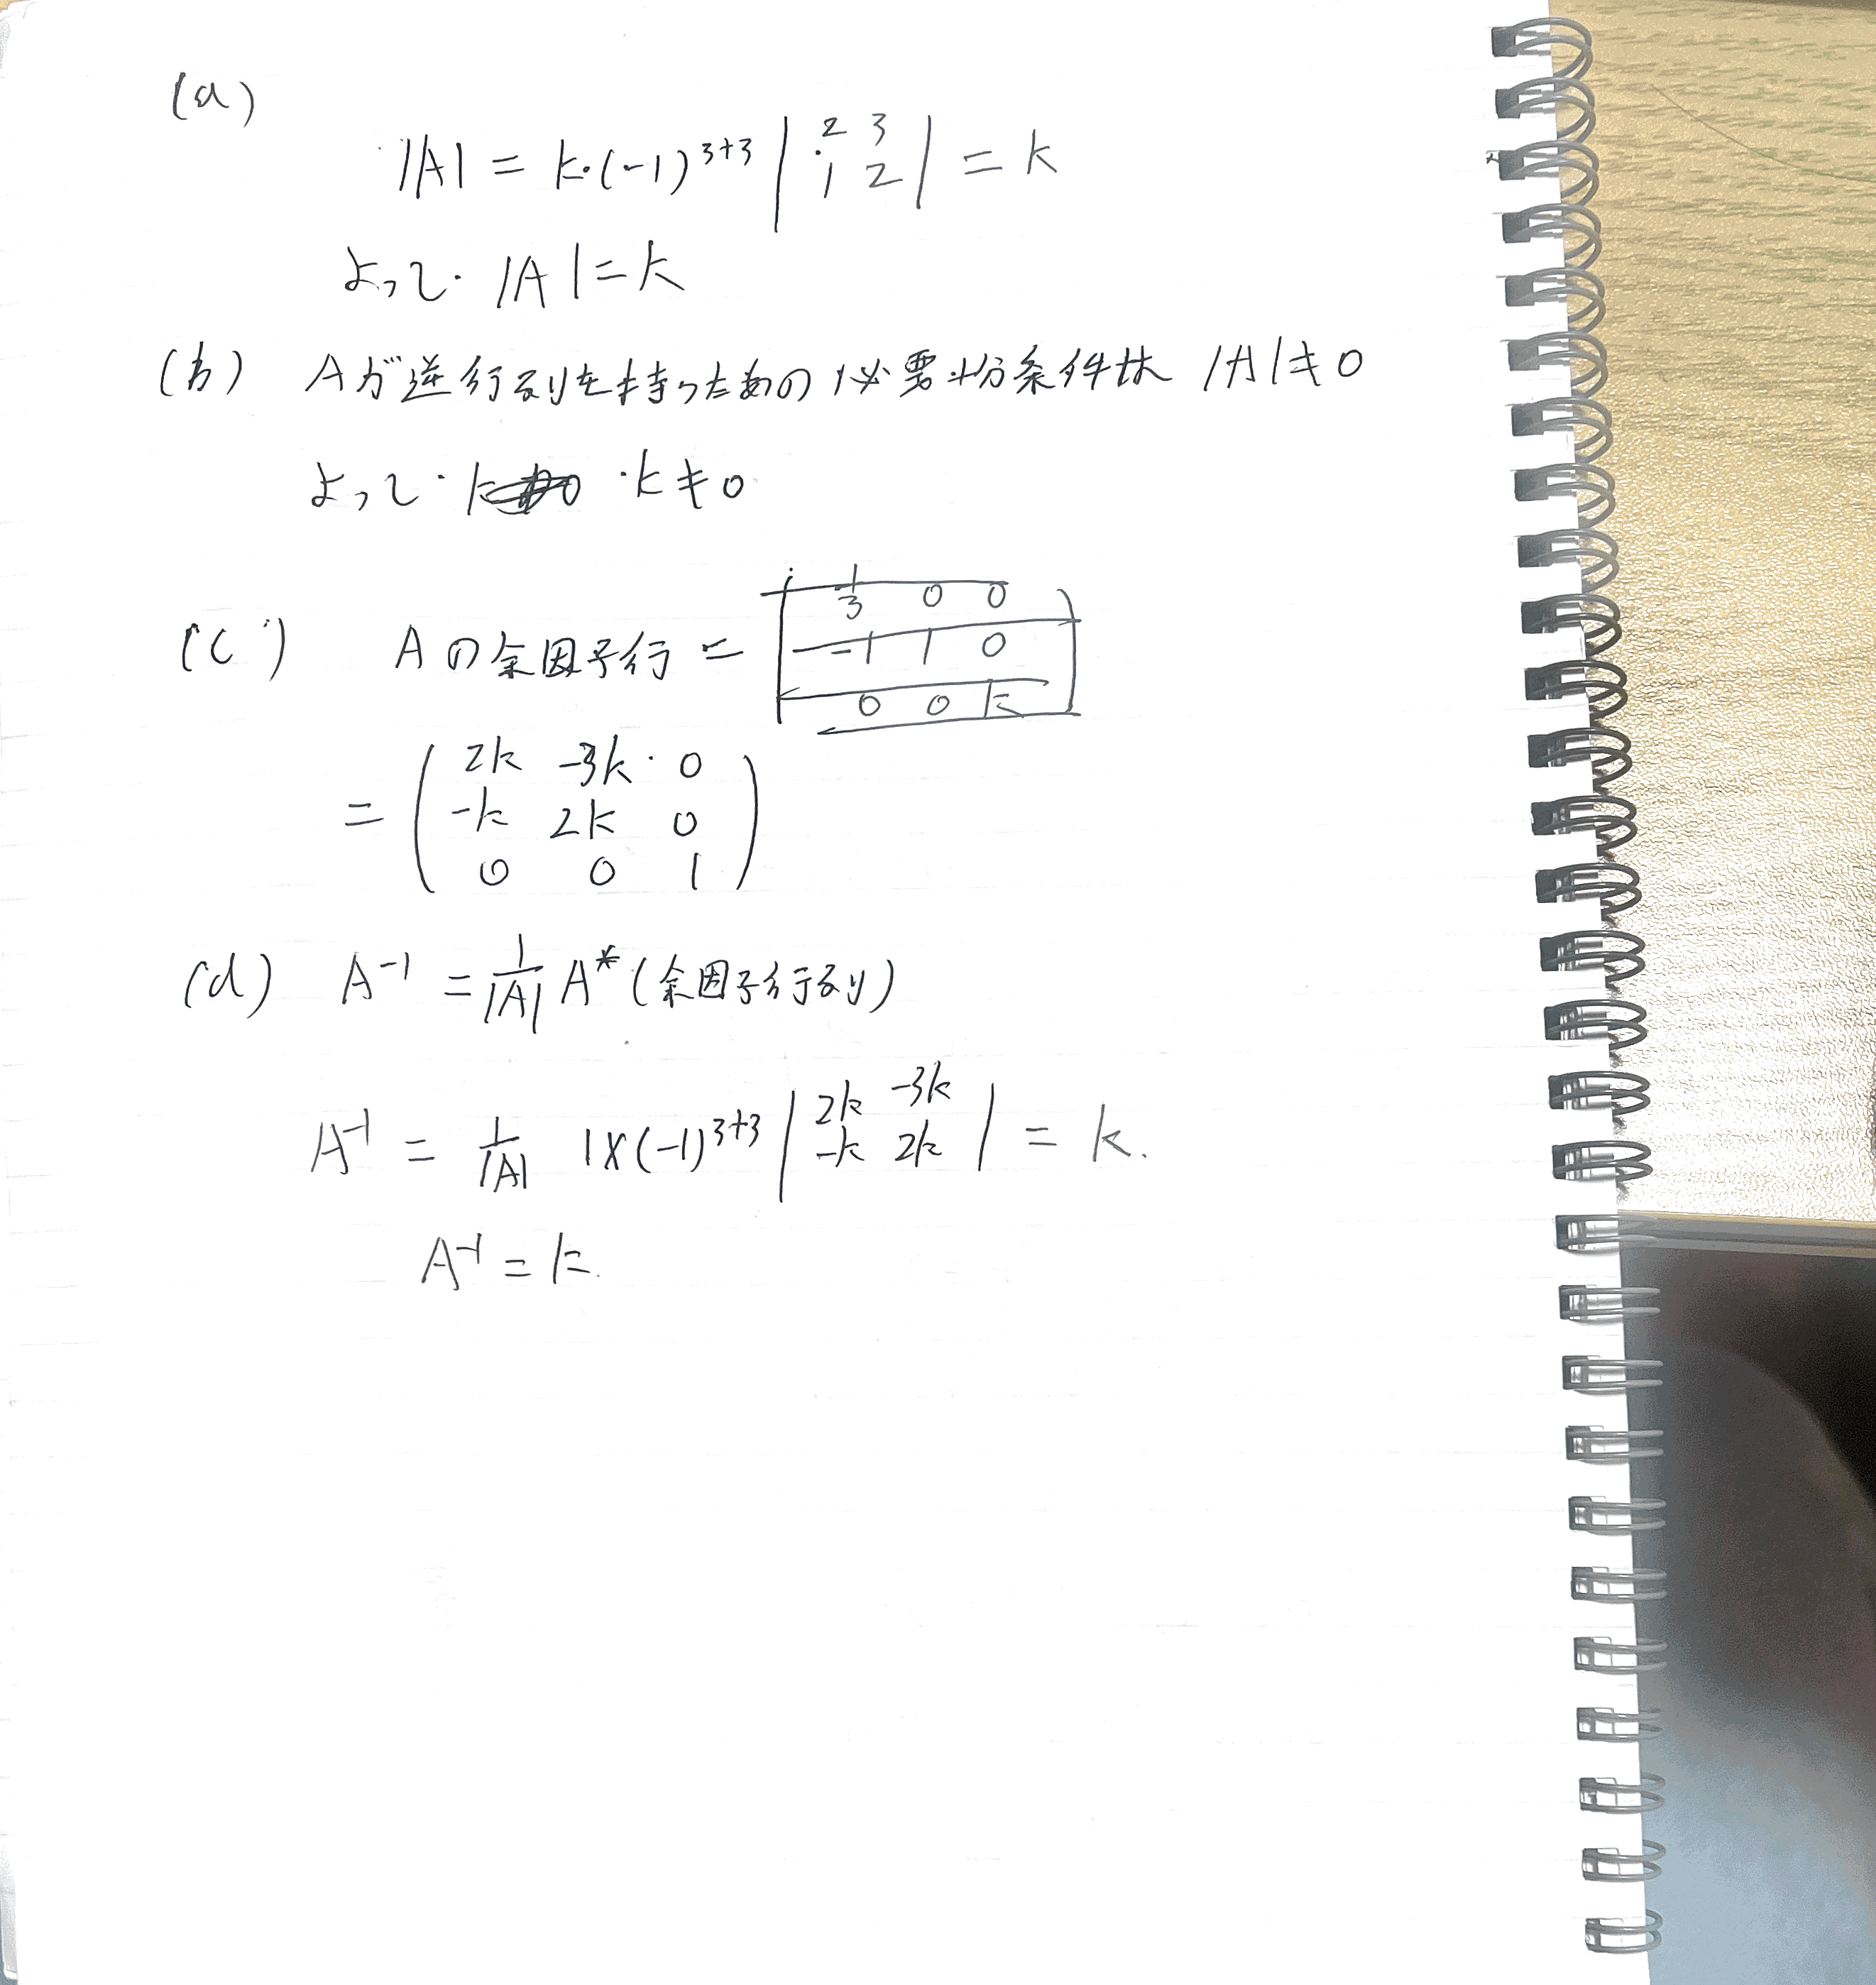 (a)
|A| = k·(-1)^{3+3} | 2 3 ; 1 2 | = k
よって. |A| = k
(b) Aが逆行列を持つための必要十分条件は |A| ≠ 0
よって. k ≠ 0
(c) Aの余因子行 =
= ( 2k -3k 0 ; -k 2k 0 ; 0 0 1 )
(d) A^{-1} = 1/|A| A* (余因子行列)
A^{-1} = 1/|A| 1×(-1)^{3+3} | 2k -3k ; -k 2k | = k.
A^{-1} = k.